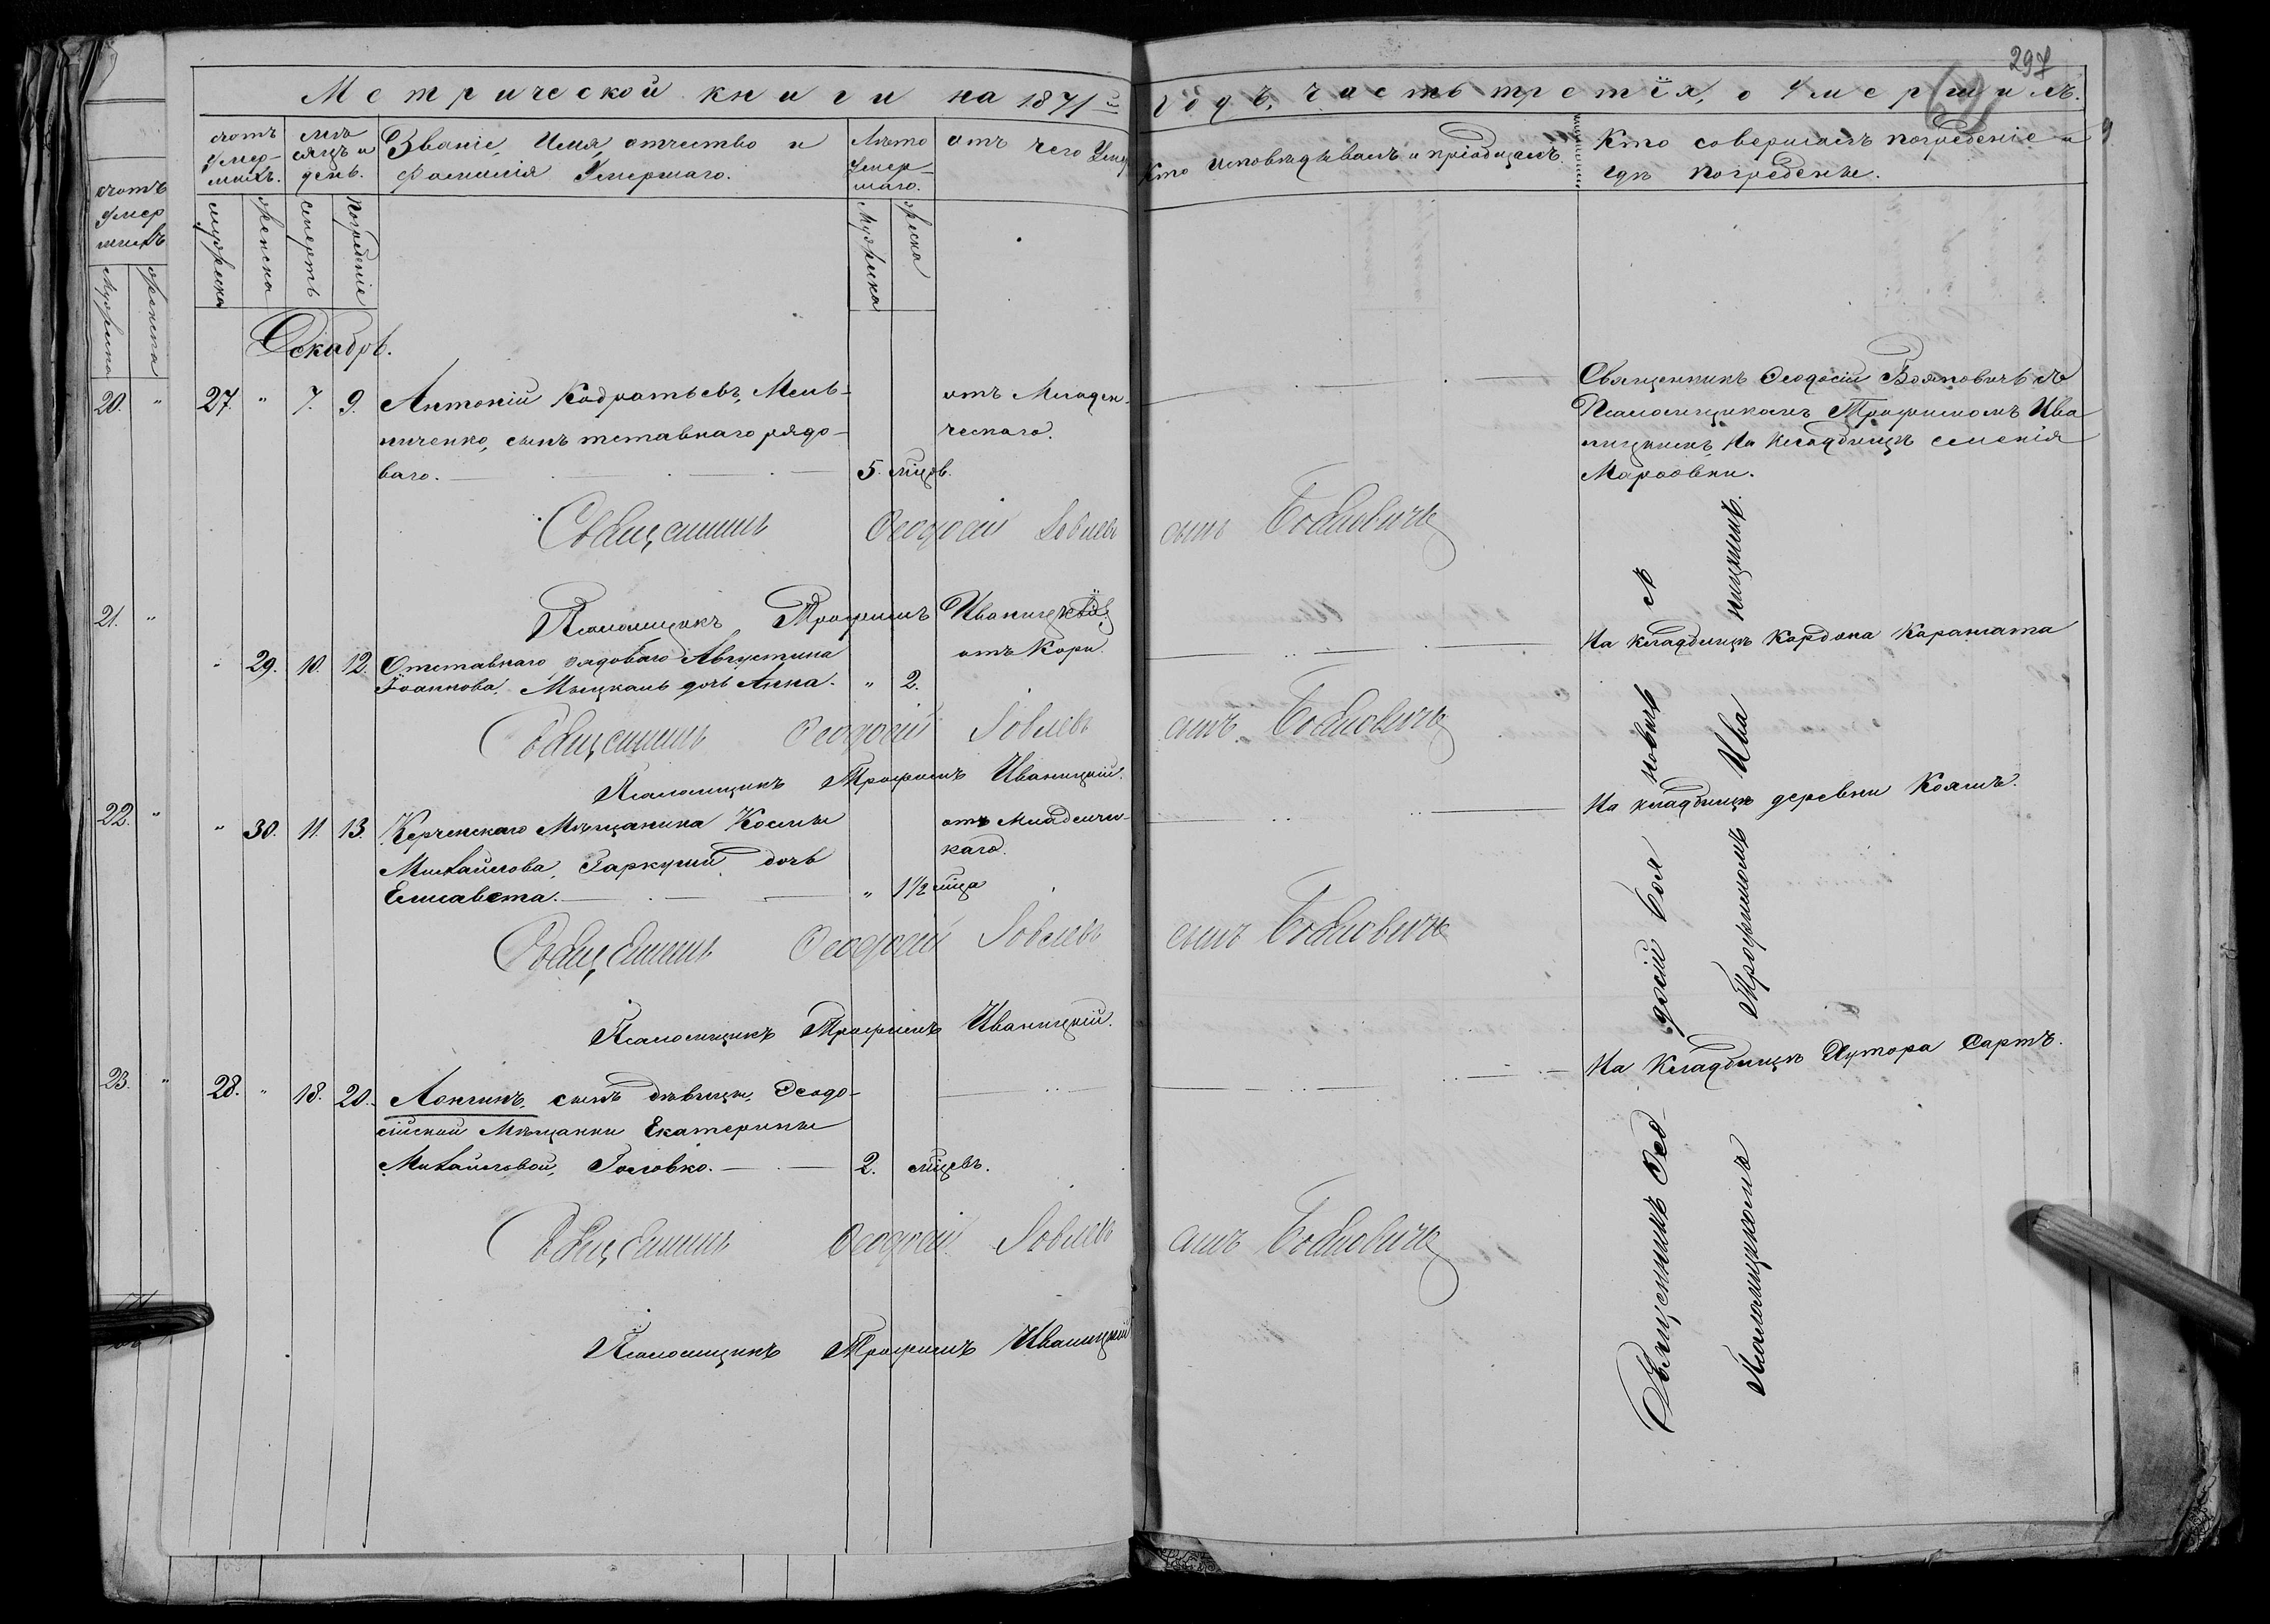 297
Метрической книги на 1871й годъ, часть третїя, о умершихъ.
счотъ умер-шихъ.
мѣсяцъ и день.
Званіе, Имя, отчество и фамилія Умершаго.
Лѣто Умер-шаго.
отъ чего Умеръ
Кто исповѣдывалъ и пріобщалъ
Кто совершалъ погребеніе и
гдѣ погребены.
счотъ
умер
шихъ
мужеска
женска
мужеска
женска
смерть
погребеніе
Мужеска
женска
Декабрь.
20. "
27. " 7. 9. Антоній Кодратьевъ, Мель-
ниченко, сынъ отставнаго рядо-
ваго. 5. мѣцов.
отъ Младен-
ческаго.
Священникъ Феодосій Бояновичъ съ
Псаломщикомъ Трофимомъ Ива
ницкимъ, На кладбищѣ селенія
Марфовки.
Священникъ Феодосій Іовлевъ сынъ Бояновичъ
21. "
Псаломщикъ Трофимъ Иваницкій
" 29. 10. 12. Отставнаго рядоваго Августина
Іоаннова, Мыцкань дочь Анна. " 2.
отъ Кори.
На кладбищѣ Кордона Каранлата
Священникъ Феодосій Іовлевъ сынъ Бояновичъ
Псаломщикъ Трофимъ Иваницкій.
22. "
" 30. 11. 13. Керченскаго Мѣщанина Космы
Михайлова, Гаркуши, дочь
Елисавета. " 1 1/2 мѣца
отъ младенче-
каго.
На кладбищѣ деревни Кояшъ.
Священникъ Феодосій Іовлевъ сынъ Бояновичъ
Псаломщикъ Трофимъ Иваницкій.
23. "
28. " 18. 20. Лонгинъ, сынъ дѣвицы, Феодо-
сійской Мѣщанки Екатерины
Михайловой, Головко. 2. мѣцевъ.
На Кладбищѣ Хутора Сартъ.
Священникъ Феодосій Іовлевъ сынъ Бояновичъ
Псаломщикъ Трофимъ Иваницкій
Священникъ Фео-
досій Боя
новичъ съ
Псаломщикомъ
Трофимомъ
Ива
ницкимъ.